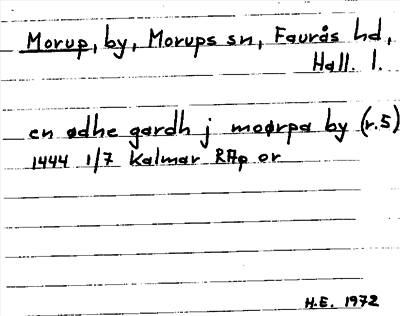 Morup, by, Morups sn, Faurås hd,
Hall. l.
en ødhe gardh j moørpa by (r.5)
1444 1/7 Kalmar RAp or
H.E. 1972